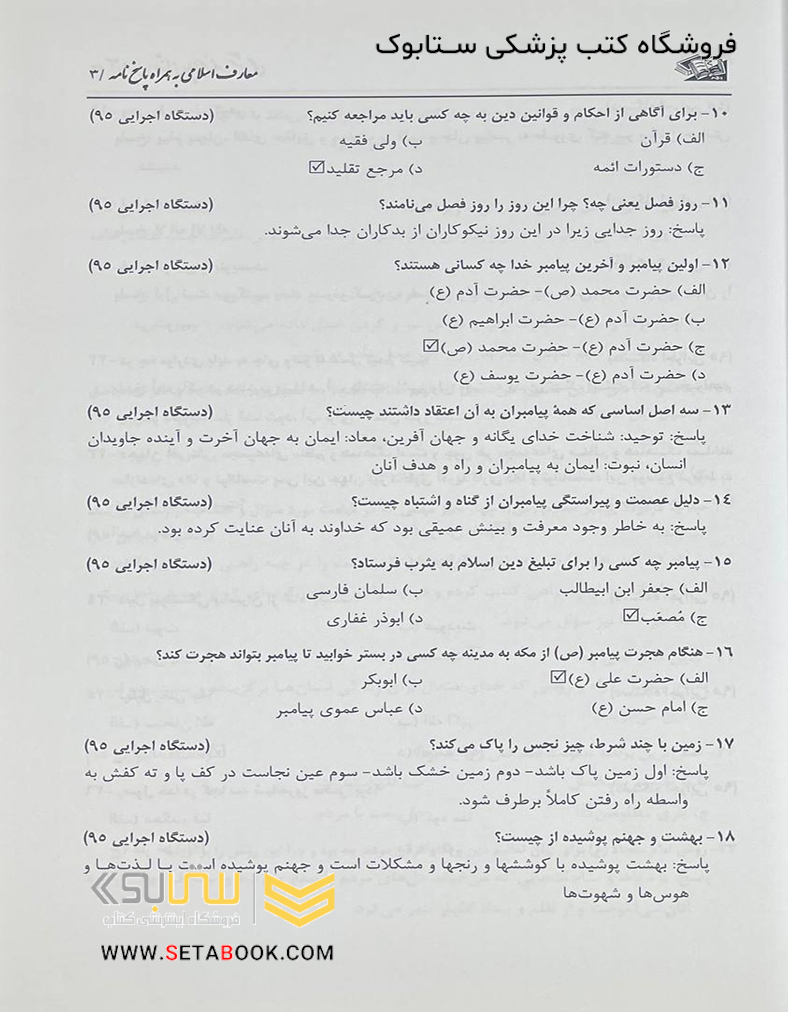 فروشگاه کتب پزشکی ستابوک
معارف اسلامی به همراه پاسخ نامه / ۳
۱۰- برای آگاهی از احکام و قوانین دین به چه کسی باید مراجعه کنیم؟ (دستگاه اجرایی ۹۵)
الف) قرآن ب) ولی فقیه
ج) دستورات ائمه د) مرجع تقلید☑
۱۱- روز فصل یعنی چه؟ چرا این روز را روز فصل می‌نامند؟ (دستگاه اجرایی ۹۵)
پاسخ: روز جدایی زیرا در این روز نیکوکاران از بدکاران جدا می‌شوند.
۱۲- اولین پیامبر و آخرین پیامبر خدا چه کسانی هستند؟ (دستگاه اجرایی ۹۵)
الف) حضرت محمد (ص)- حضرت آدم (ع)
ب) حضرت آدم (ع)- حضرت ابراهیم (ع)
ج) حضرت آدم (ع)- حضرت محمد (ص)☑
د) حضرت آدم (ع)- حضرت یوسف (ع)
۱۳- سه اصل اساسی که همهٔ پیامبران به آن اعتقاد داشتند چیست؟ (دستگاه اجرایی ۹۵)
پاسخ: توحید: شناخت خدای یگانه و جهان آفرین، معاد: ایمان به جهان آخرت و آینده جاویدان
انسان، نبوت: ایمان به پیامبران و راه و هدف آنان
۱۴- دلیل عصمت و پیراستگی پیامبران از گناه و اشتباه چیست؟ (دستگاه اجرایی ۹۵)
پاسخ: به خاطر وجود معرفت و بینش عمیقی بود که خداوند به آنان عنایت کرده بود.
۱۵- پیامبر چه کسی را برای تبلیغ دین اسلام به یثرب فرستاد؟ (دستگاه اجرایی ۹۵)
الف) جعفر ابن ابیطالب ب) سلمان فارسی
ج) مُصعَب☑ د) ابوذر غفاری
۱۶- هنگام هجرت پیامبر (ص) از مکه به مدینه چه کسی در بستر خوابید تا پیامبر بتواند هجرت کند؟
الف) حضرت علی (ع)☑ ب) ابوبکر
ج) امام حسن (ع) د) عباس عموی پیامبر
۱۷- زمین با چند شرط، چیز نجس را پاک می‌کند؟ (دستگاه اجرایی ۹۵)
پاسخ: اول زمین پاک باشد- دوم زمین خشک باشد- سوم عین نجاست در کف پا و ته کفش به
واسطه راه رفتن کاملاً برطرف شود.
۱۸- بهشت و جهنم پوشیده از چیست؟ (دستگاه اجرایی ۹۵)
پاسخ: بهشت پوشیده با کوششها و رنجها و مشکلات است و جهنم پوشیده است با لذت‌ها و
هوس‌ها و شهوت‌ها
ستابوک
فروشگاه اینترنتی کتاب
WWW.SETABOOK.COM